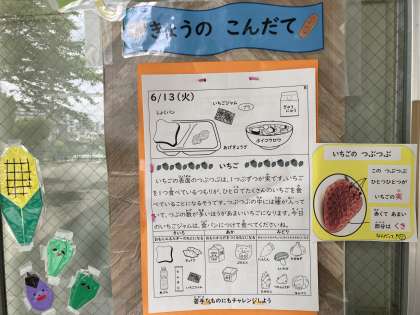 きょうの こんだて
6/13(火)
いちごジャム
しょくパン
ぎゅうにゅう
あげぎょうざ
ホイコウロウ
いちご
いちごの表面のつぶつぶは、1つぶずつが実です。いちご
を1つ食べているつもりが、ひと口でたくさんのいちごを食
べていることになるそうです。つぶつぶの中には種が入って
いて、つぶの数が多いほうがあまいいちごになります。今日
のいちごジャムは、食パンにつけて食べてくださいね。
きいろ
あか
みどり
苦手なものにもチャレンジしよう
いちごの つぶつぶ
この つぶつぶ
ひとつひとつが
いちごの実
赤くて あまい
部分は くき
なんだって